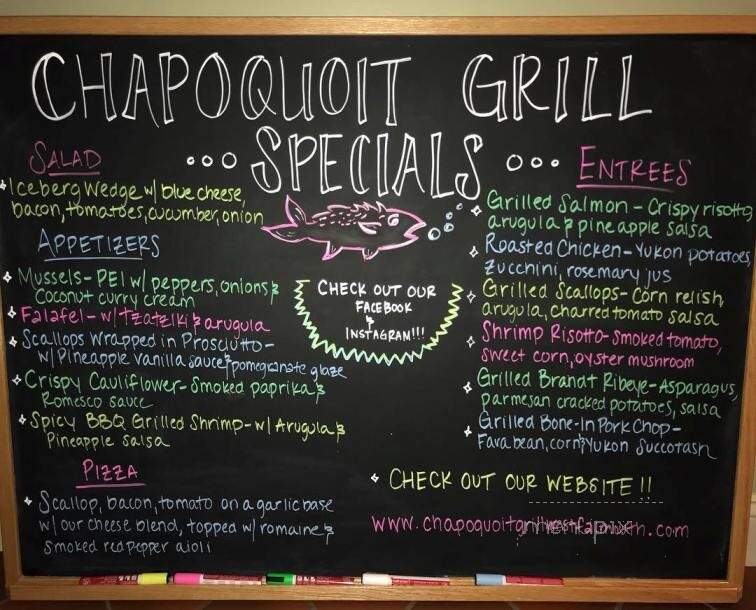 CHAPOQUOIT GRILL
... SPECIALS ...
SALAD
Iceberg Wedge w/ blue cheese,
bacon, tomatoes, cucumber, onion
APPETIZERS
Mussels - PEI w/ peppers, onions &
Coconut curry cream
Falafel - w/ Tzatziki & arugula
Scallops Wrapped in Prosciutto -
w/ Pineapple vanilla sauce & pomegranate glaze
Crispy Cauliflower - Smoked paprika &
Romesco sauce
Spicy BBQ Grilled Shrimp - w/ Arugula &
Pineapple salsa
PIZZA
Scallop, bacon, tomato on a garlic base
w/ our cheese blend, topped w/ romaine &
smoked red pepper aioli
CHECK OUT OUR
FACEBOOK
&
INSTAGRAM!!!
ENTREES
Grilled Salmon - Crispy risotto
arugula & pineapple salsa
Roasted Chicken - Yukon potatoes,
zucchini, rosemary jus
Grilled Scallops - Corn relish,
arugula, charred tomato salsa
Shrimp Risotto - Smoked tomato,
sweet corn, oyster mushroom
Grilled Brandt Ribeye - Asparagus,
parmesan cracked potatoes, salsa
Grilled Bone-In Pork Chop -
Fava bean, corn & Yukon Succotash
CHECK OUT OUR WEBSITE!!